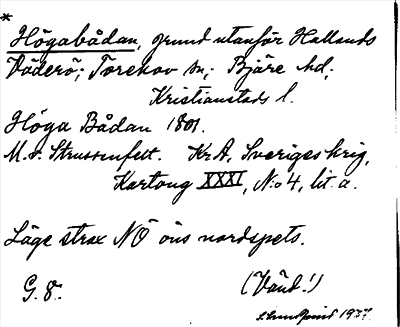 *
Högabådan, grund utanför Hallands
Väderö; Torekov sn; Bjäre hd;
Kristianstads l.
Höga Bådan 1801.
M. v. Strussenfelt. KrA, Sveriges krig,
Kartong XXXI, N:o 4, lit. a.
Läge strax NÖ öns nordspets.
G. 8.
(Vänd!)
1937.